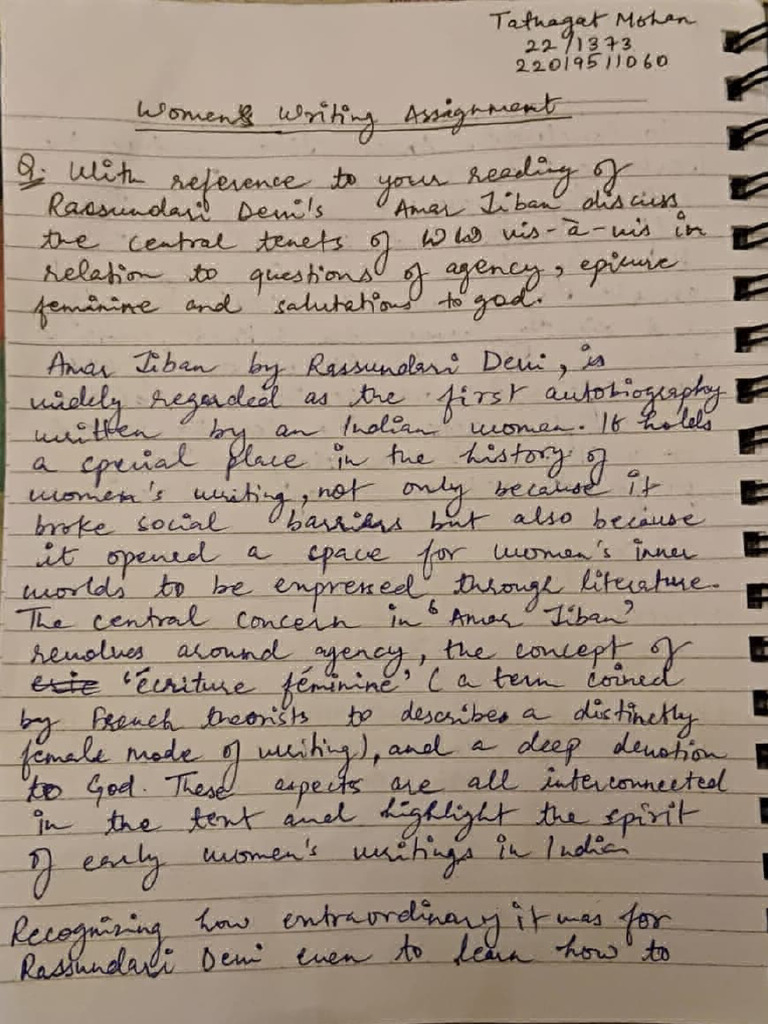 Tathagat Mohan
22/1373
22019511060
Women's Writing Assignment
Q. With reference to your reading of
Rassundari Devi's Amar Jiban discuss
the central tenets of WW vis-à-vis in
relation to questions of agency, epicure
feminine and salutations to god.
Amar Jiban by Rassundari Devi, is
widely regarded as the first autobiography
written by an Indian woman. It holds
a special place in the history of
women's writing, not only because it
broke social barriers but also because
it opened a space for women's inner
worlds to be expressed through literature.
The central concern in 'Amar Jiban'
revolves around agency, the concept of
'écriture féminine' (a term coined
by French theorists to describe a distinctly
female mode of writing), and a deep devotion
to God. These aspects are all interconnected
in the text and highlight the spirit
of early women's writings in Indian
Recognizing how extraordinary it was for
Rassundari Devi even to learn how to